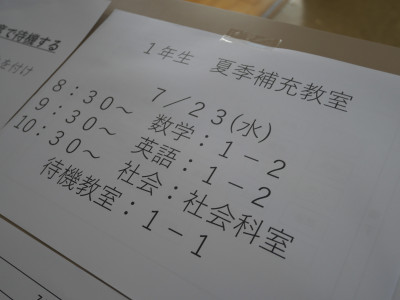 で待機する
を付け
1年生　夏季補充教室
7／23(水)
8：30～　数学：1－2
9：30～　英語：1－2
10：30～　社会：社会科室
待機教室：1－1